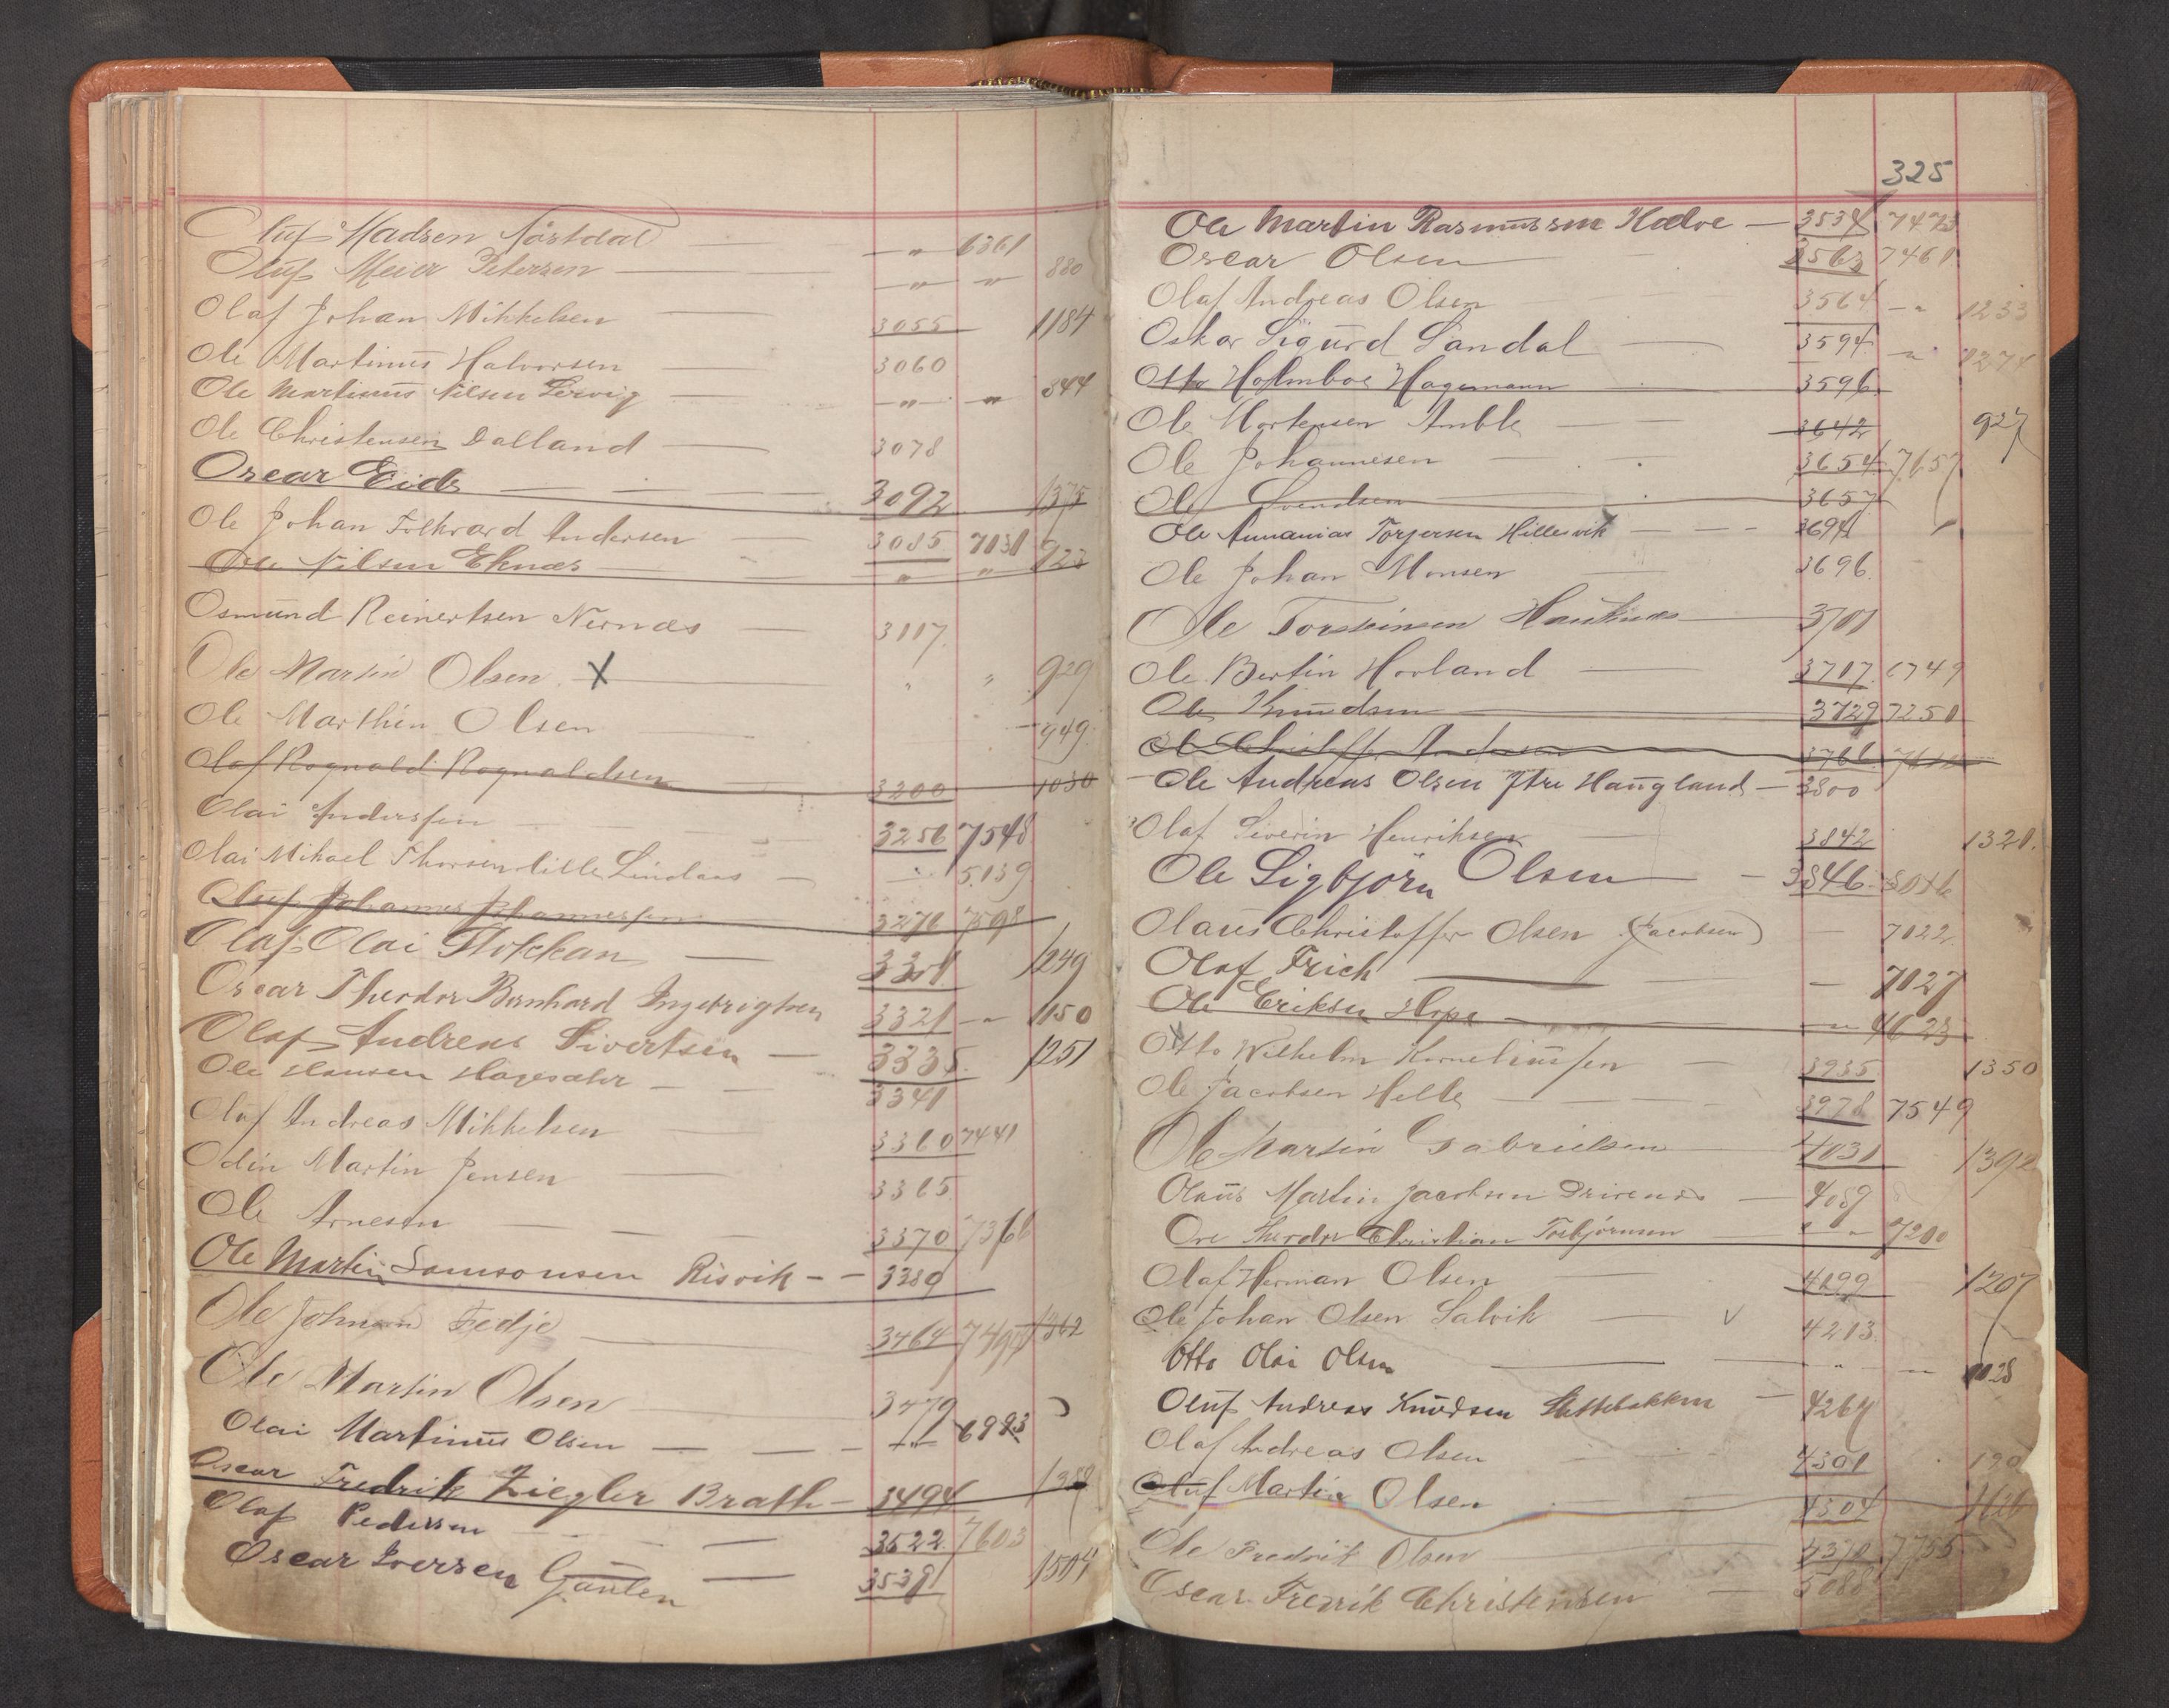 Oluf Madsen Nörstdal — „ 6361
Oluf Meier Petersen — „ „ 880
Olaf Johan Mikkelsen — 3055 1184
Ole Martinus Halvorsen — 3060
Ole Martinus Nilsen Lervig — „ „ 844
Ole Christensen Dalland — 3078
Oscar Eide — 3092 1375
Ole Johan Folkvard Andersen — 3085 7131 923
Ole Nilsen Eknæs „ „
Osmund Reinertsen Nernæs — 3117
Ole Martin Olsen X „ „ 929
Ole Marthin Olsen 949
Olaf Rognald Rognaldsen 3200 1030
Olai Anderssen 3256 7548
Olai Mikael Thorsen lille Lindaas — 5139
Oluf Johannes Johannessen 3270 7598
Olaf Olai Flokkan — 3301 1249
Oscar Theodor Bernhard Ingebrigtsen 3321 „ 1150
Olaf Andreas Sivertsen — 3335 1251
Ole Hansen Hagesæter — 3341
Oluf Andreas Mikkelsen 3360 7441
Odin Martin Jensen 3365
Ole Arnesen — 3370 7368
Ole Martin Samsonsen Risvik — 3389
Ole Johnsen Fedje 3464 1362
Ole Martin Olsen 3479
Olai Martinus Olsen — „ 6993
Oscar Fredrik Ziegler Brath — 3494
Olaf Pedersen — 3522 7603
Oscar Iversen Gaulen — 3539 1504
325
Ole Martin Rasmussen Kalve — 3534 7473
Oscar Olsen 3563 7461
Olaf Andreas Olsen 3564 „ 1233
Oskar Sigurd Sandal — 3594 „ 1274
Otto Holmboe Hagemann 3596
Ole Mortensen Amble — 3642 927
Ole Johannesen 3654 7657
Ole Svendsen 3657
Ole Annanias Torjersen Hillesvik — 3694
Ole Johan Monsen 3696
Ole Torsteinsen Hauknæs — 3701
Ole Bertin Hovland — 3707 6749
Ole Knudsen 3729 7250
Ole Christoffer Andersen 3766
Ole Andreas Olsen Ytre Haugland — 3800
Olaf Siverin Henriksen 3842 1321
Ole Sigbjörn Olsen — 3846
Olaus Christoffer Olsen (Jacobsen) — 7022
Olaf Frich — 7027
Ole Eriksen Hope — „ 4623
Otto Wilhelm Korneliussen — 3935 1350
Ole Jacobsen Helle — 3978 7549
Ole Martin Gabrielsen 4031 1392
Olaus Martin Jacobsen Drivenes — 4059
Ove Theodor Christian Torbjörnsen „ „ 7200
Olaf Herman Olsen — 4199 1207
Ole Johan Olsen Salvik — V 4213
Otto Olai Olsen — „ — 1128
Oluf Andreas Knudsen Slettebakken — 4264
Olaf Andreas Olsen 4301
Oluf Martin Olsen 4304
Ole Fredrik Olsen 4370 7755
Oscar Fredrik Christensen — 5088